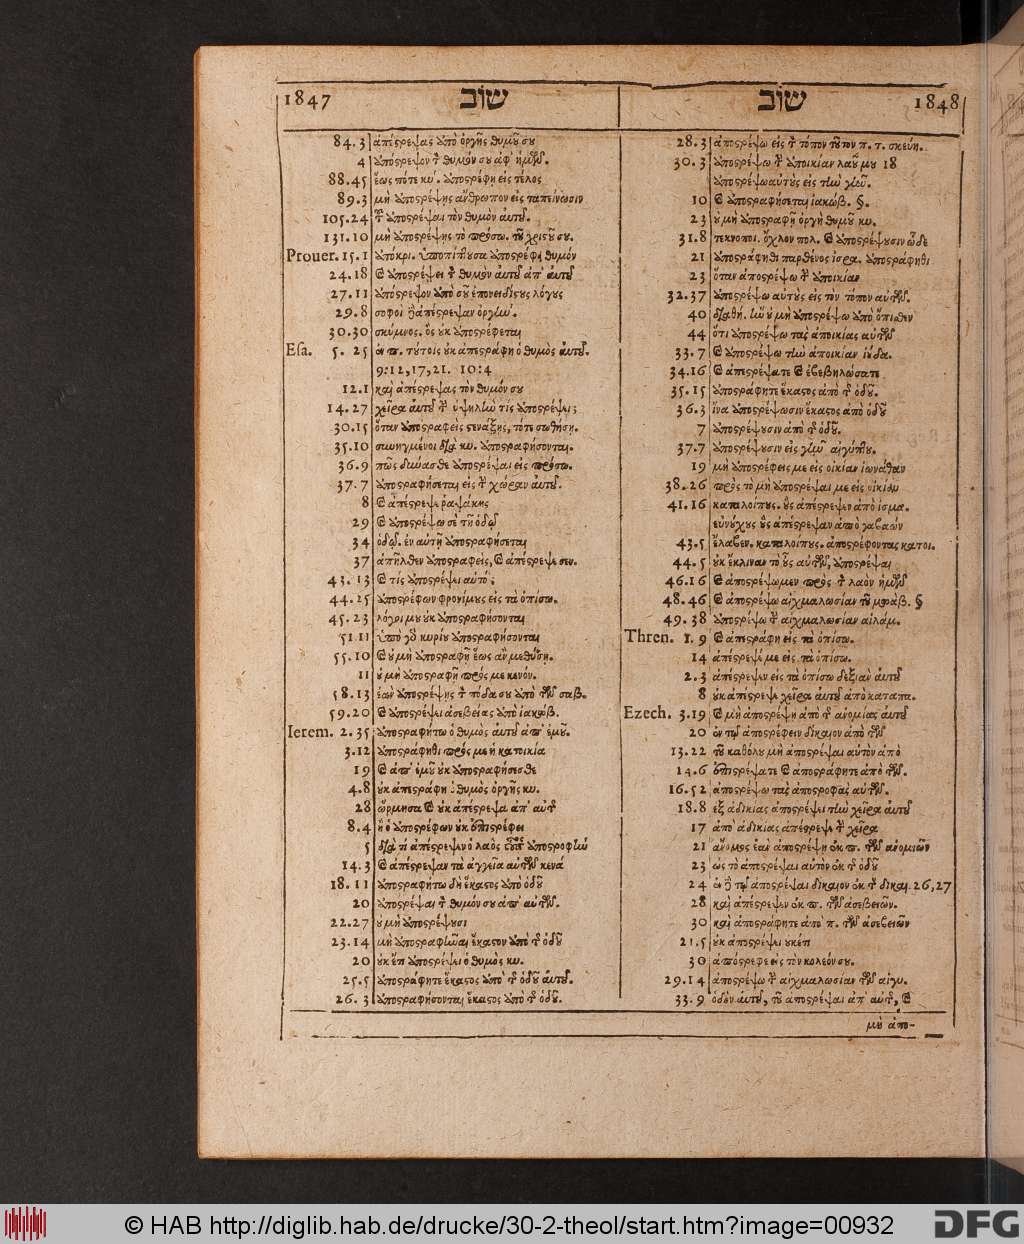 1847 שוב
84.3 ἀπέστρεψας ἀπὸ ὀργῆς θυμοῦ σου
4 ἀπόστρεψον τὸν θυμόν σου ἀφ' ἡμῶν.
88.45 ἕως πότε κύ. ἀποστρέφῃ εἰς τέλος
89.3 μὴ ἀποστρέψῃς ἄνθρωπον εἰς ταπείνωσιν
105.24 τοῦ ἀποστρέψαι τὸν θυμὸν αὐτοῦ.
131.10 μὴ ἀποστρέψῃς τὸ πρόσω. τοῦ χριστοῦ σου.
Prouer. 15.1 ἀπόκρι. ὑποπίπτουσα ἀποστρέφει θυμόν
24.18 καὶ ἀποστρέψει τὸν θυμὸν αὐτοῦ ἀπ' αὐτοῦ
27.11 ἀπόστρεψον ἀπὸ σοῦ ἐπονειδίστους λόγους
29.8 σοφοὶ δὲ ἀπέστρεψαν ὀργήν.
30.30 σκύμνος. ὃς οὐκ ἀποστρέφεται
Esa. 5.25 ἐν π. τούτοις οὐκ ἀπεστράφη ὁ θυμὸς αὐτοῦ.
9:12,17,21. 10:4
12.1 καὶ ἀπέστρεψας τὸν θυμόν σου
14.27 χεῖρα αὐτοῦ τὴν ὑψηλὴν τίς ἀποστρέψει;
30.15 ὅταν ἀποστραφεὶς στενάξῃς, τότε σωθήσῃ.
35.10 συνηγμένοι διὰ κυ. ἀποστραφήσονται.
36.9 πῶς δύνασθε ἀποστρέψαι εἰς πρόσω.
37.7 ἀποστραφήσεται εἰς τὴν χώραν αὐτοῦ.
8 καὶ ἀπέστρεψε ῥαψάκης
29 καὶ ἀποστρέψω σε τῇ ὁδῷ
34 ὁδῷ. ἐν αὐτῇ ἀποστραφήσεται
37 ἀπῆλθεν ἀποστραφεὶς, καὶ ἀπέστρεψε σεν.
43.13 καὶ τίς ἀποστρέψει αὐτό;
44.25 ἀποστρέφων φρονίμους εἰς τὰ ὀπίσω.
45.23 λόγοι μου οὐκ ἀποστραφήσονται
51.11 ὑπὸ γὰρ κυρίου ἀποστραφήσονται
55.10 καὶ οὐ μὴ ἀποστραφῇ ἕως ἂν μεθύσῃ.
11 οὐ μὴ ἀποστραφῇ πρός με κενόν.
58.13 ἐὰν ἀποστρέψῃς τὸν πόδα σου ἀπὸ τῶν σαβ.
59.20 καὶ ἀποστρέψει ἀσεβείας ἀπὸ ἰακώβ.
Ierem. 2.35 ἀποστραφήτω ὁ θυμὸς αὐτοῦ ἀπ' ἐμοῦ.
3.12 ἀποστράφηθι πρός με ἡ κατοικία
19 καὶ ἀπ' ἐμοῦ οὐκ ἀποστραφήσεσθε
4.8 οὐκ ἀπεστράφη ὁ θυμὸς ὀργῆς κυ.
28 ὥρμησα καὶ οὐκ ἀπέστρεψα ἀπ' αὐτῆς
8.4 ἢ ὁ ἀποστρέφων οὐκ ἐπιστρέφει
5 διὰ τί ἀπέστρεψεν ὁ λαὸς οὗτος ἀποστροφὴν
14.3 καὶ ἀπέστρεψαν τὰ ἀγγεῖα αὐτῶν κενά
18.11 ἀποστραφήτω δὴ ἕκαστος ἀπὸ ὁδοῦ
20 ἀποστρέψαι τὸν θυμόν σου ἀπ' αὐτῶν.
22.27 οὐ μὴ ἀποστρέψουσι
23.14 μὴ ἀποστραφῆναι ἕκαστον ἀπὸ τῆς ὁδοῦ
20 οὐκ ἔτι ἀποστρέψει ὁ θυμὸς κυ.
25.5 ἀποστράφητε ἕκαστος ἀπὸ τῆς ὁδοῦ αὐτοῦ.
26.3 ἀποστραφήσονται ἕκαστος ἀπὸ τῆς ὁδοῦ.
שוב 1848
28.3 ἀποστρέψω εἰς τὸν τόπον τοῦτον π. τ. σκεύη.
30.3 ἀποστρέψω τὴν ἀποικίαν λαοῦ μου 18
ἀποστρέψω αὐτοὺς εἰς τὴν γῆν.
10 καὶ ἀποστραφήσεται ἰακώβ. §.
23 οὐ μὴ ἀποστραφῇ ὀργὴ θυμοῦ κυ.
31.8 τεκνοποι. ὄχλον πολ. καὶ ἀποστρέψουσιν ὧδε
21 ἀποστράφηθι παρθένος ἰσρα. ἀποστράφηθι
23 ὅταν ἀποστρέψω τὴν ἀποικίαν
32.37 ἀποστρέψω αὐτοὺς εἰς τὸν τόπον αὐτῶν.
40 διαθή. ἣν οὐ μὴ ἀποστρέψω ἀπὸ ὄπισθεν
44 ὅτι ἀποστρέψω τὰς ἀποικίας αὐτῶν
33.7 καὶ ἀποστρέψω τὴν ἀποικίαν ἰούδα.
34.16 καὶ ἀπεστρέψατε καὶ ἐβεβηλώσατε
35.15 ἀποστράφητε ἕκαστος ἀπὸ τῆς ὁδοῦ.
36.3 ἵνα ἀποστρέψωσιν ἕκαστος ἀπὸ ὁδοῦ
7 ἀποστρέψουσιν ἀπὸ τῆς ὁδοῦ.
37.7 ἀποστρέψουσιν εἰς γῆν αἰγύπτου.
19 μὴ ἀποστρέφεις με εἰς οἰκίαν ἰωνάθαν
38.26 πρὸς τὸ μὴ ἀποστρέψαι με εἰς οἰκίαν
41.16 καταλοίπους. οὓς ἀπέστρεψεν ἀπὸ ἰσμα.
εὐνούχους οὓς ἀπέστρεψαν ἀπὸ γαβαών
43.5 ἔλαβεν. καταλοίπους. ἀποστρέφοντας κατοι.
44.5 οὐκ ἔκλιναν τὸ οὖς αὐτῶν, ἀποστρέψαι
46.16 καὶ ἀποστρέψωμεν πρὸς τὸν λαὸν ἡμῶν
48.46 καὶ ἀποστρέψω αἰχμαλωσίαν τοῦ μωάβ. §
49.38 ἀποστρέψω τὴν αἰχμαλωσίαν αἰλάμ.
Thren. 1.9 καὶ ἀπεστράφη εἰς τὰ ὀπίσω.
14 ἀπέστρεψέ με εἰς τὰ ὀπίσω.
2.3 ἀπέστρεψεν εἰς τὰ ὀπίσω δεξιὰν αὐτοῦ
8 οὐκ ἀπέστρεψε χεῖρα αὐτοῦ ἀπὸ καταπα.
Ezech. 3.19 καὶ μὴ ἀποστρέψῃ ἀπὸ τῆς ἀνομίας αὐτοῦ
20 ἐν τῷ ἀποστρέφειν δίκαιον ἀπὸ τῶν
13.22 τοῦ καθόλου μὴ ἀποστρέψαι αὐτὸν ἀπὸ
14.6 ἐπιστρέψατε καὶ ἀποστράφητε ἀπὸ τῶν.
16.52 ἀποστρέψω τὰς ἀποστροφὰς αὐτῶν.
18.8 ἐξ ἀδικίας ἀποστρέψει τὴν χεῖρα αὐτοῦ
17 ἀπὸ ἀδικίας ἀπέστρεψε τὴν χεῖρα
21 ἄνομος ἐὰν ἀποστρέψῃ ἐκ π. τῶν ἀνομιῶν
23 ὡς τὸ ἀποστρέψαι αὐτὸν ἐκ τῆς ὁδοῦ
24 ἐν δὲ τῷ ἀποστρέψαι δίκαιον ἐκ τῆς δικαι. 26,27
28 καὶ ἀπέστρεψεν ἐκ π. τῶν ἀσεβειῶν.
30 καὶ ἀποστράφητε ἀπὸ π. τῶν ἀσεβειῶν
21.5 οὐκ ἀποστρέψει οὐκέτι
30 ἀπόστρεφε εἰς τὸν κολεόν σου.
29.14 ἀποστρέψω τὴν αἰχμαλωσίαν τῶν αἰγυ.
33.9 ὁδὸν αὐτοῦ, τοῦ ἀποστρέψαι ἀπ' αὐτῆς, καὶ
μὴ ἀπο-
© HAB http://diglib.hab.de/drucke/30-2-theol/start.htm?image=00932
DFG